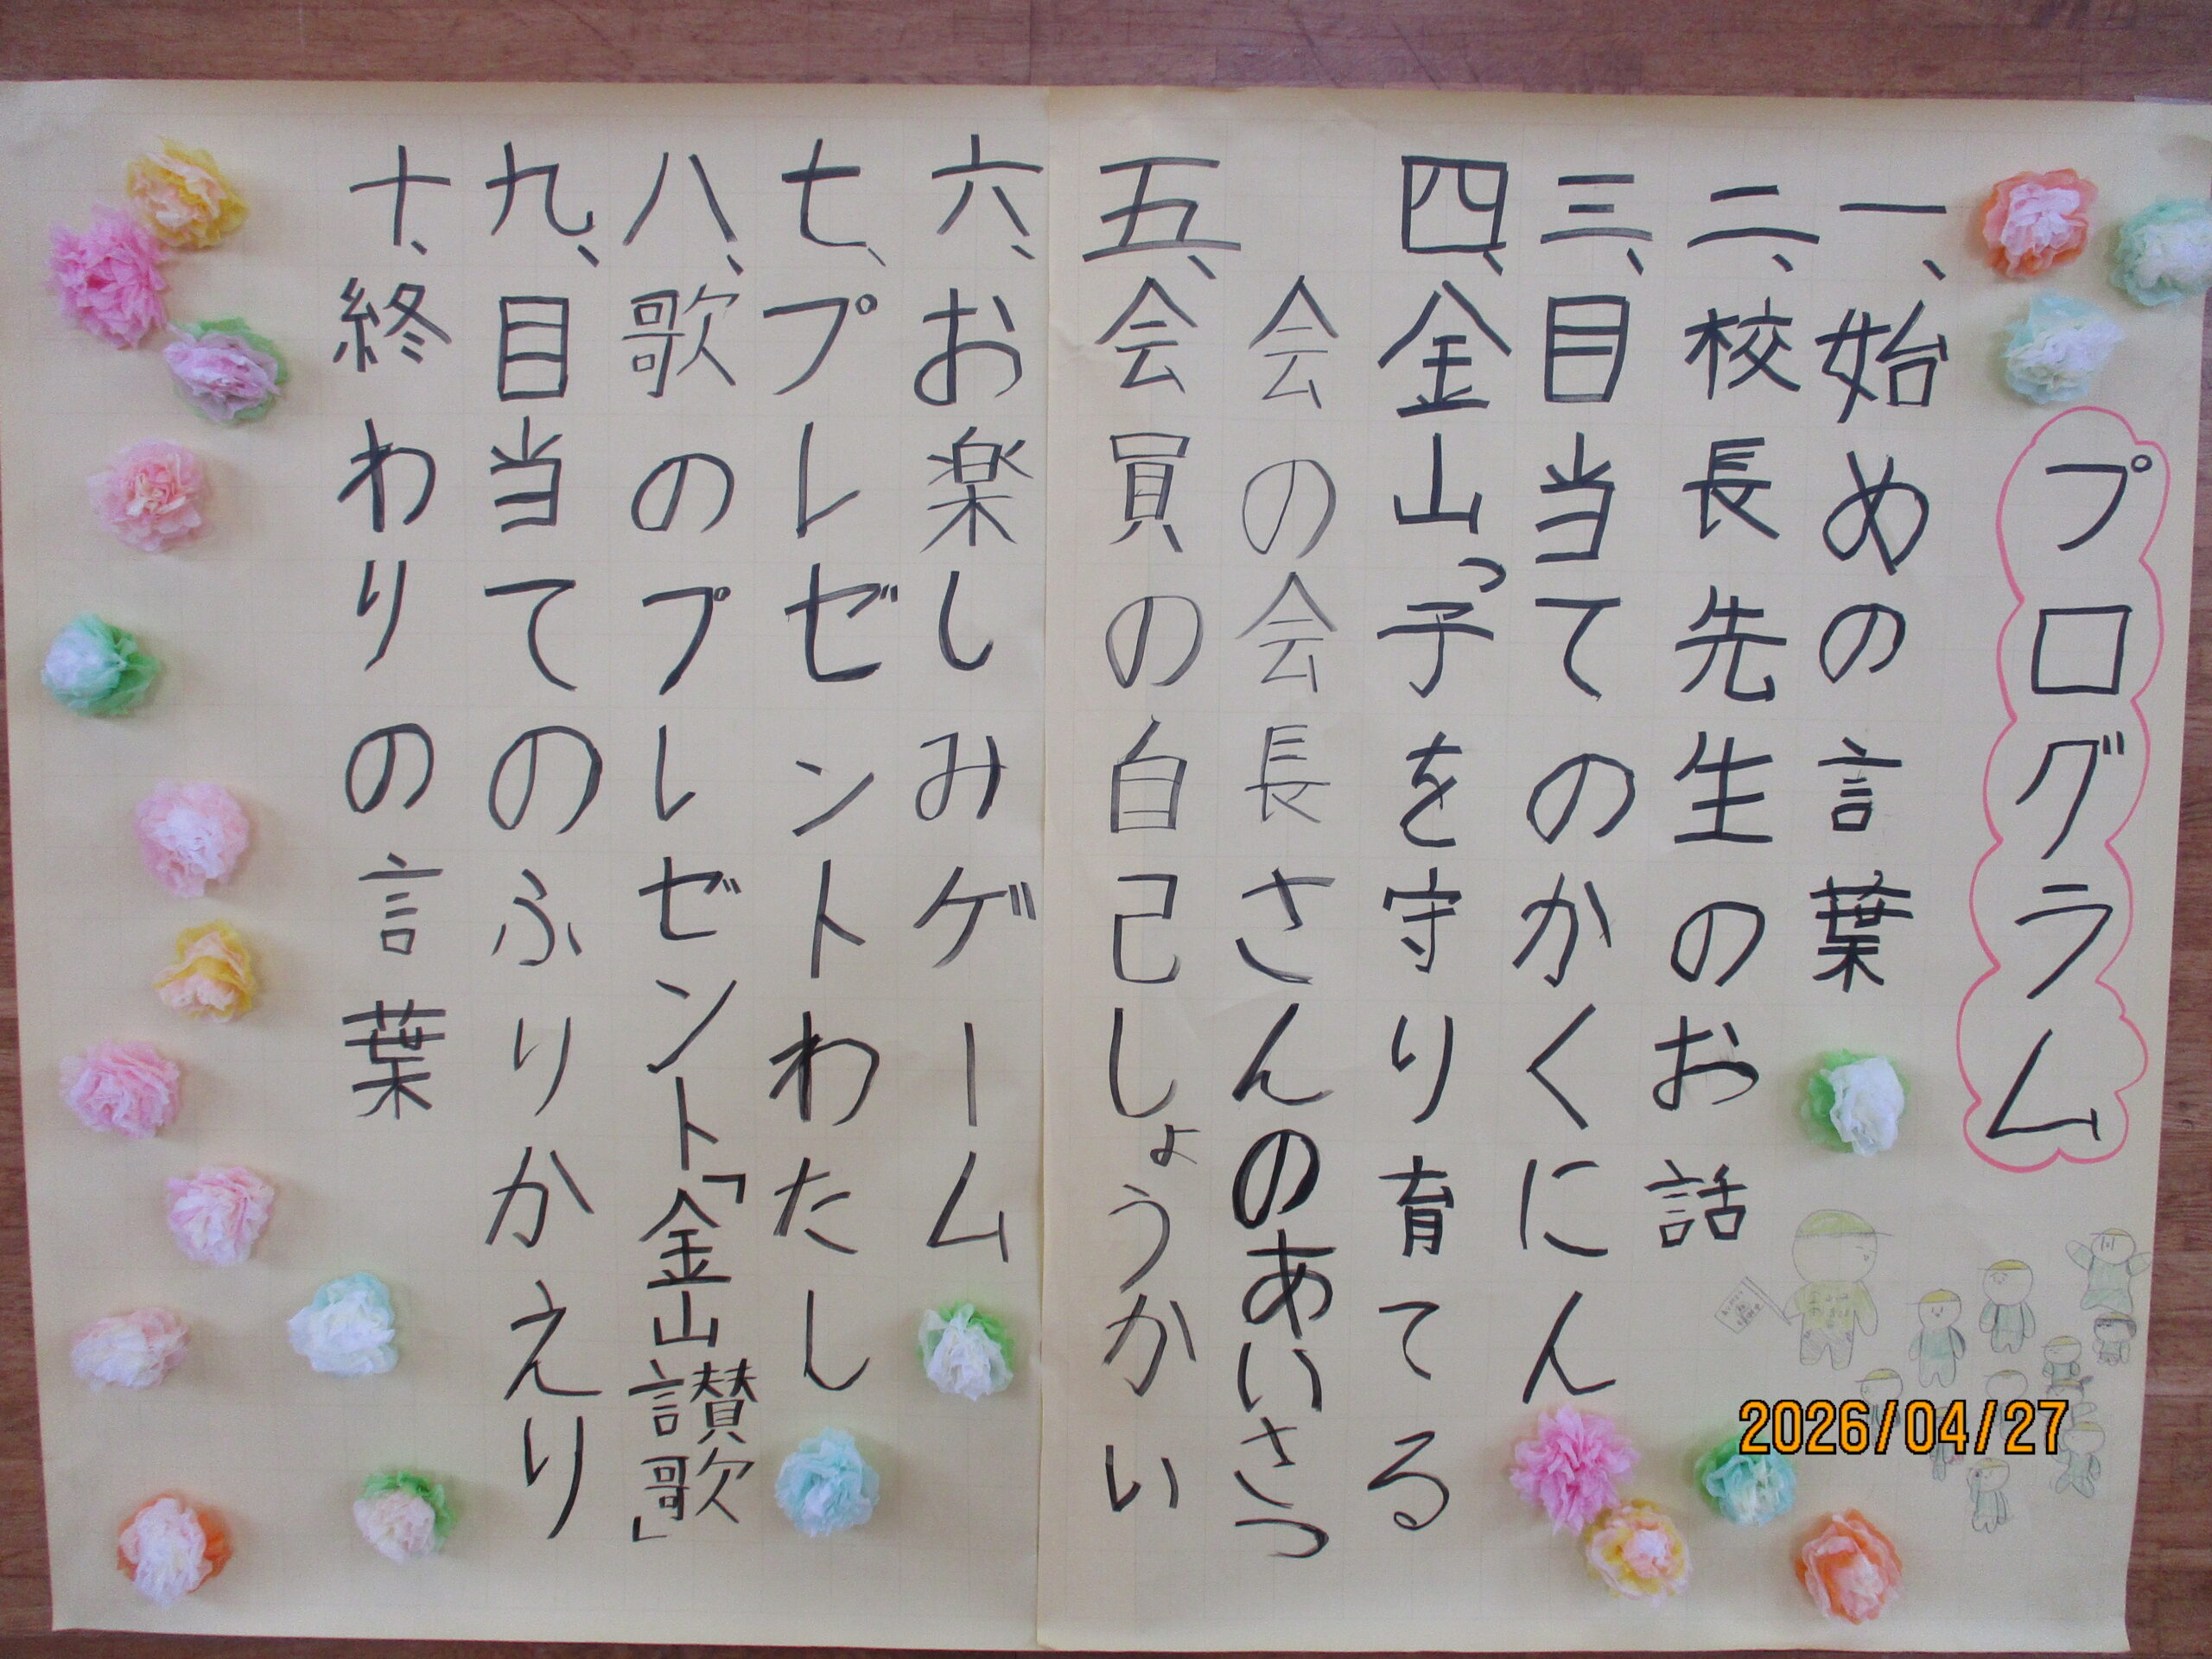 プログラム
一、始めの言葉
二、校長先生のお話
三、目当てのかくにん
四、金山っ子を守り育てる
会の会長さんのあいさつ
五、会員の自己しょうかい
六、お楽しみゲーム
七、プレゼントわたし
八、歌のプレゼント「金山讃歌」
九、目当てのふりかえり
十、終わりの言葉
2026/04/27